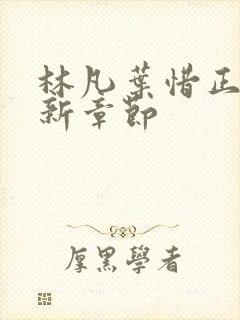 林凡葉惜正
新章節
厚黑學者